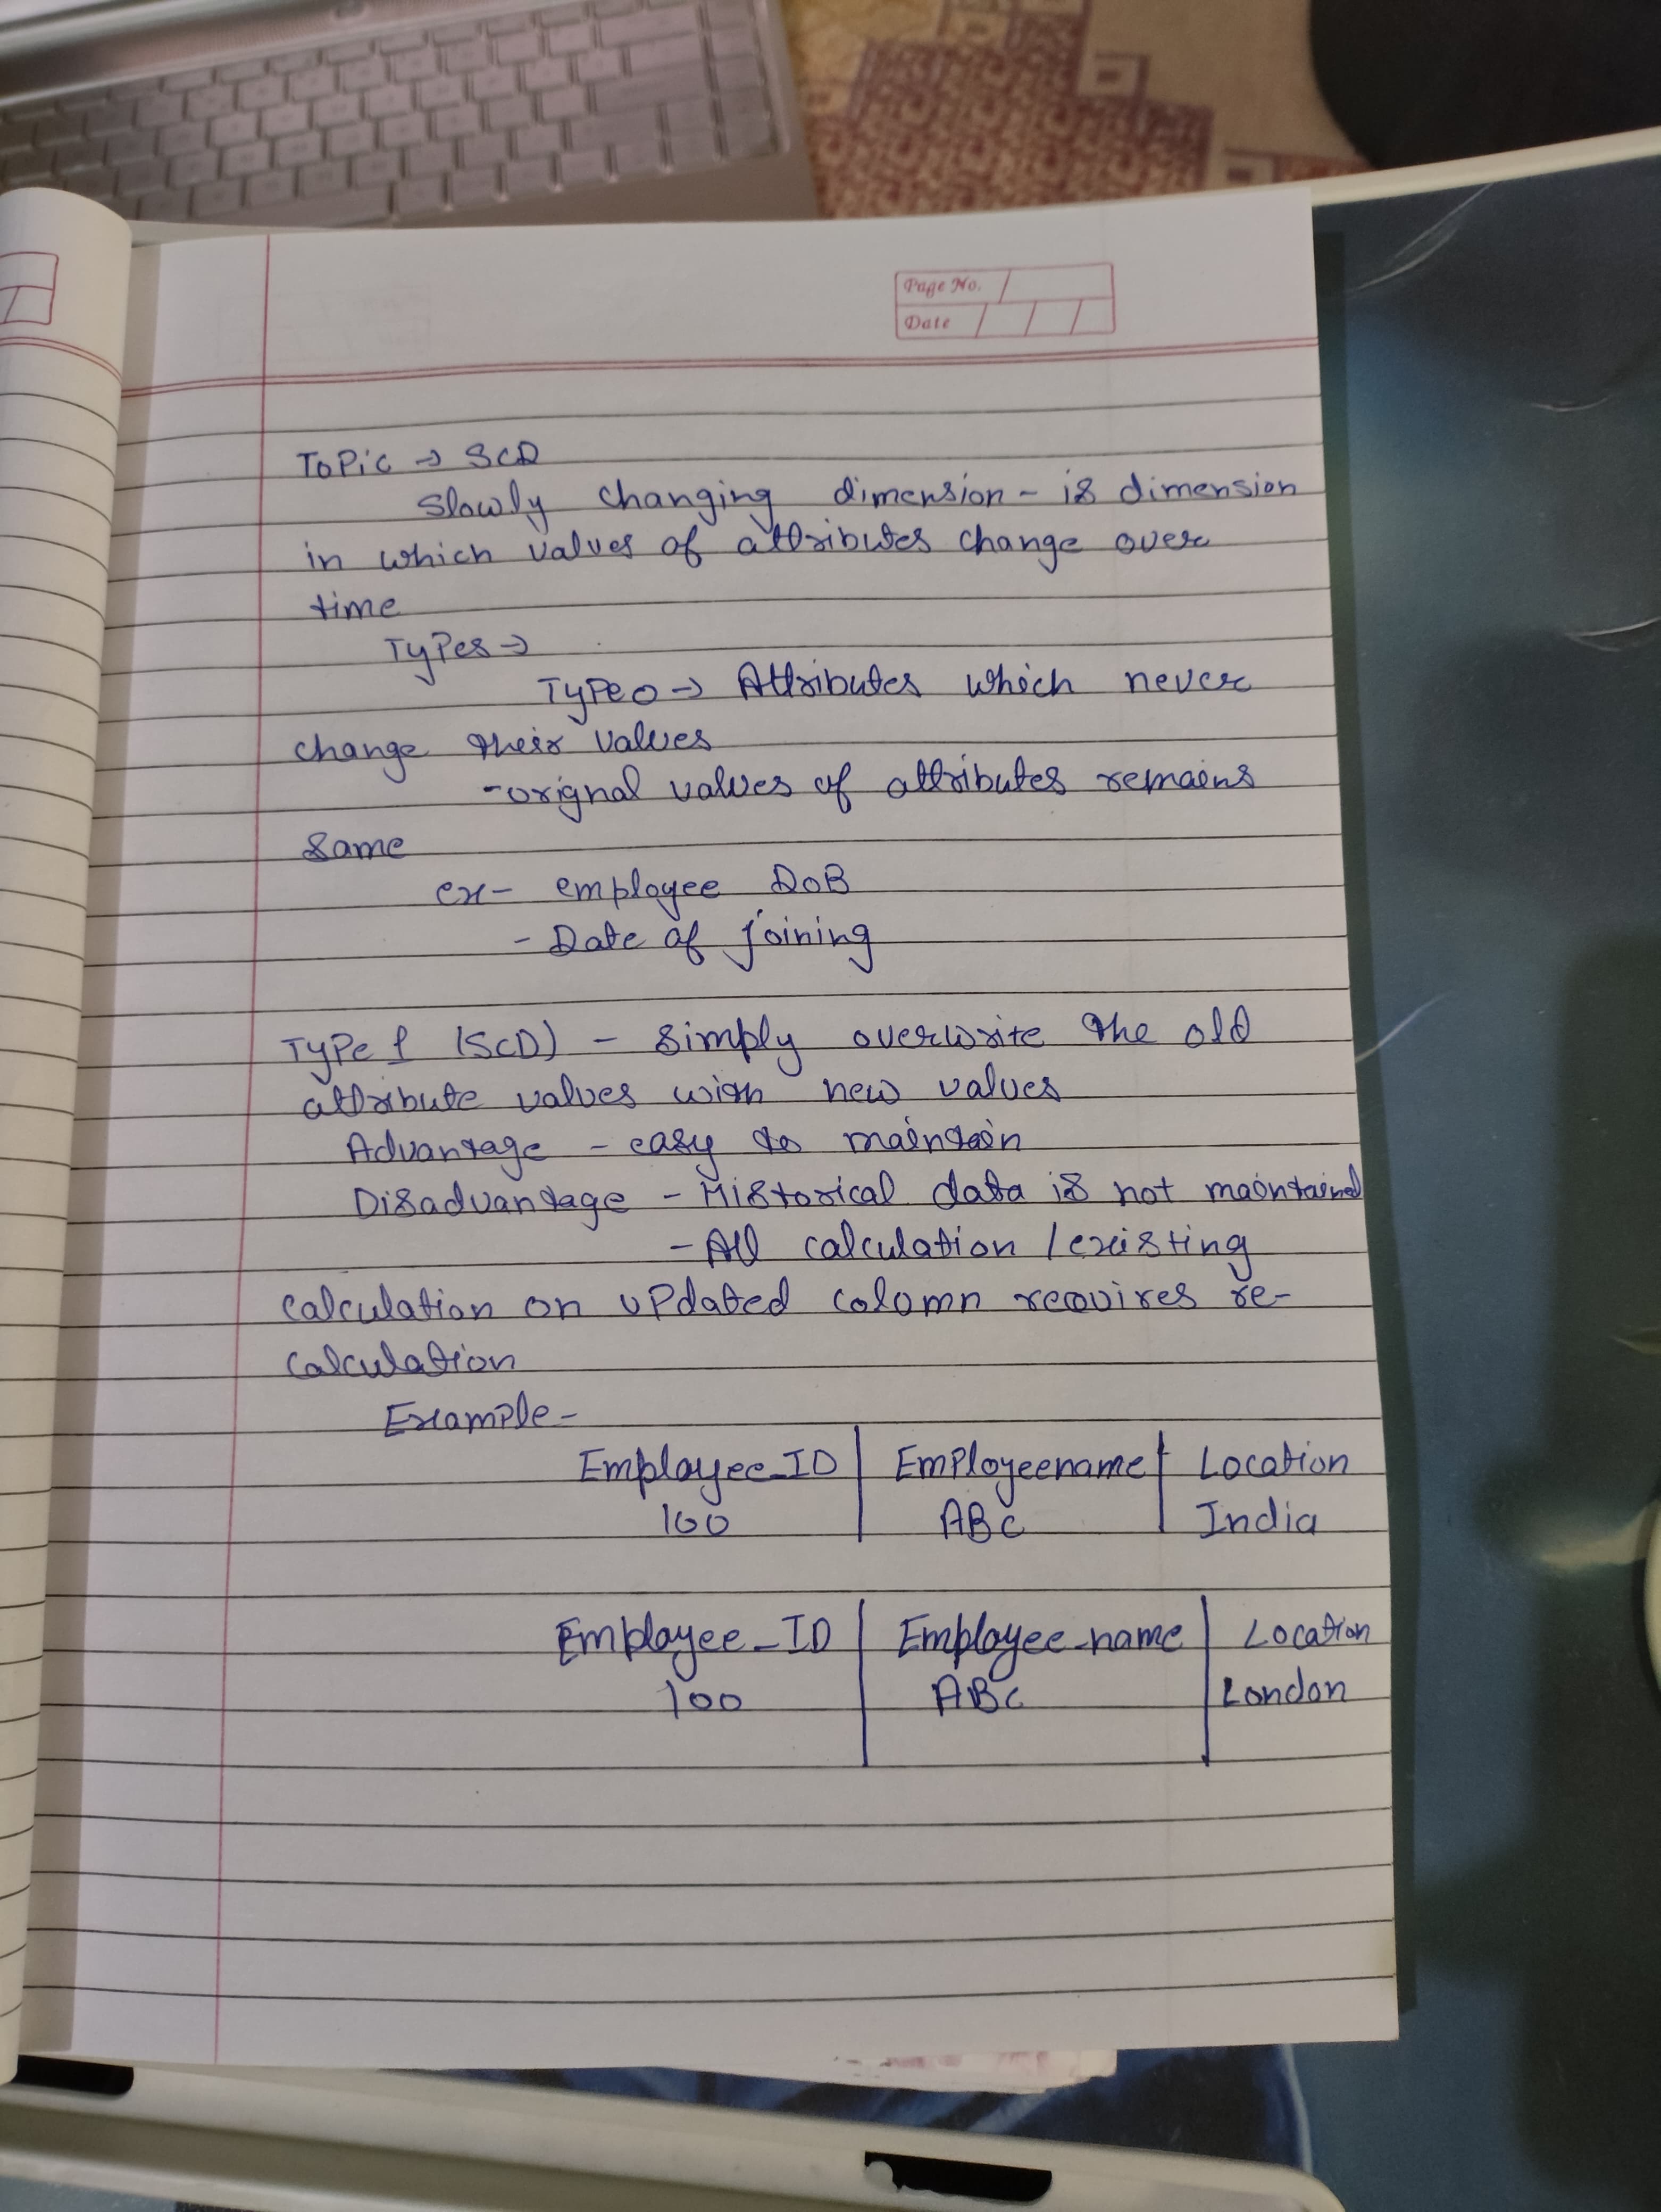 Page No.
Date
Topic → SCD
Slowly changing dimension - is dimension
in which values of attributes change over
time
Types →
Type 0 → Attributes which never
change their values
- orignal values of attributes remains
same
ex - employee DOB
- Date of joining
Type 1 (SCD) - Simply overwrite the old
attribute values with new values
Advantage - easy to maintain
Disadvantage - Historical data is not maintained
- All calculation / existing
calculation on updated column requires re-
calculation
Example -
Employee_ID | Employeename | Location
100 | ABC | India
Employee_ID | Employee_name | Location
100 | ABC | London